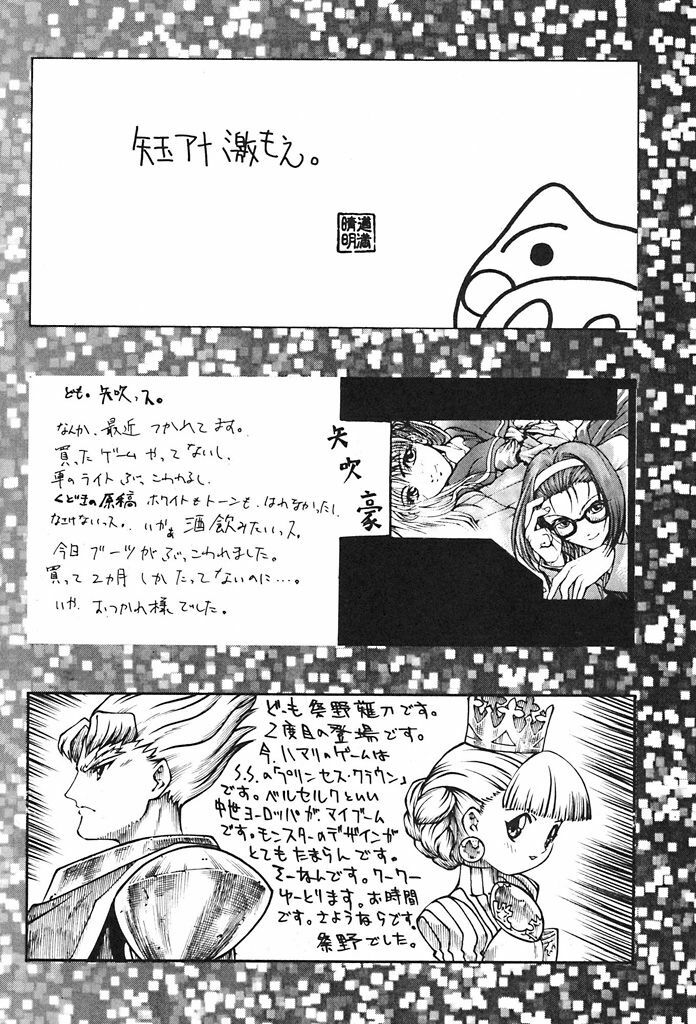 短玉アナ 激もえ。
道満
晴明
ども。矢吹っス。
なんか、最近 つかれてます。
買ったゲーム やってないし、
車のライト ぶっこわれるし、
くどまの原稿 ホワイトもトーンも、はれなかったし、
なさけないっス。いやぁ 酒飲みたいっス。
今日 ブーツが ぶっこわれました。
買って 2ヵ月 しかたってないのに…。
いや、おつかれ様でした。
矢吹豪
ども 祭野薙刀です。
2度目の登場です。
今、ハマりのゲームは
S.S.の「プリンセス・クラウン」
です。ベルセルクといい
中世ヨーロッパが、マイブーム
です。モンスターのデザインが
とてもたまらんです。
そーなんです。クークー
ゆーとります。お時間
です。さようならです。
祭野でした。